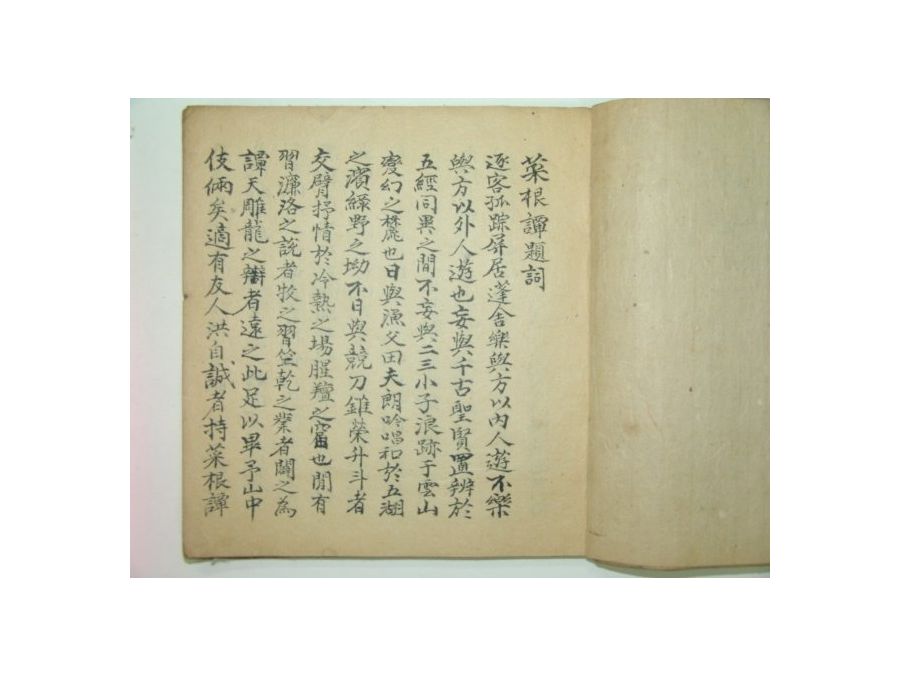 菜根譚題詞
逐客孤踪屏居蓬舍樂與方以內人遊不樂
與方以外人遊也妄與千古聖賢置辨於
五經同異之間不妄與二三小子浪跡于雲山
變幻之麓也日與漁父田夫朗吟唱和於五湖
之濱綠野之坳不日與競刀錐榮升斗者
交臂抒情於冷熱之場腥羶之窟也閒有
習濂洛之說者牧之習竺乾之業者闢之為
譚天雕龍之辯者遠之此足以畢予山中
伎倆矣適有友人洪自誠者持菜根譚